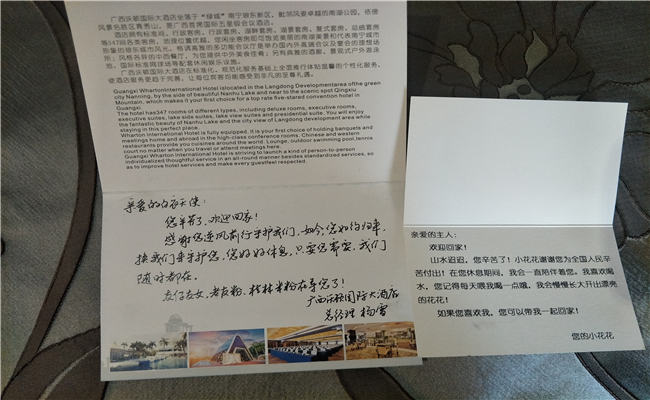 广西沃顿国际大酒店坐落于“绿城”南宁琅东新区，毗邻风姿卓越的南湖公园，依傍
风景名胜区青秀山，是广西首席国际五星级会议酒店。
酒店拥有标准间、行政客房、行政套房、湖畔套房、湖景套房、复式套房、总统套房
等347间各类客房，地理位置优越，您闲坐客房即可饱览美丽的南湖美景和代表南宁城市
形象的琅东城市风光。格调高雅的多功能会议厅是举办国内外高端会议及宴会的理想场
所；风格各异的中西餐厅，为您提供中外美食佳肴；另有典雅的酒廊、景观式户外游泳
池、国际标准网球场等配套休闲娱乐设施。
广西沃顿国际大酒店在标准化、规范化服务基础上全面推行体贴温馨的个性化服务，
使酒店服务更趋于完善，让每位宾客均能感受到非凡的至尊礼遇。
Guangxi WhartonInternational Hotel islocated in the Langdong Developmentarea ofthe green
city Nanning, by the side of beautiful Nanhu Lake and near to the scenic spot Qingxiu
Mountain, which makes it your first choice for a top rate five-stared convention hotel in
Guangxi.
The hotel has347 rooms of different types, including deluxe rooms, executive rooms,
executive suites, lake side suites, lake view suites and presidential suite. You will enjoy
the fantastic beauty of Nanhu Lake and the city view of Langdong development area while
staying in this perfect place.
Wharton International Hotel is fully equipped. It is your first choice of holding banquets and
meetings home and abroad in the high-class conference rooms. Chinese and western
restaurants provide you cuisines around the world. Lounge, outdoor swimming pool,tennis
court no matter when you travel or attend meetings here.
Guangxi Wharton International Hotel is striving to launch a kind of person-to-person
individualized thoughtful service in an all-round manner besides standardized services, so
as to improve hotel services and make every guestfeel respected.
亲爱的白衣天使：
您辛苦了，欢迎回家！
感谢您逆风前行守护我们，如今，您如约归来，
换我们来守护您，您好好休息，只要您需要，我们
随时都在。
友仔友女，老友粉、桂林米粉在等您了！
广西沃顿国际大酒店
总经理 杨雪
亲爱的主人：
欢迎回家！
山水迢迢，您辛苦了！小花花谢谢您为全国人民辛
苦付出！在您休息期间，我会一直陪伴着您。我喜欢喝
水，您记得每天喂我喝一点哦，我会慢慢长大开出漂亮
的花花！
如果您喜欢我，您可以带我一起回家！
您的小花花